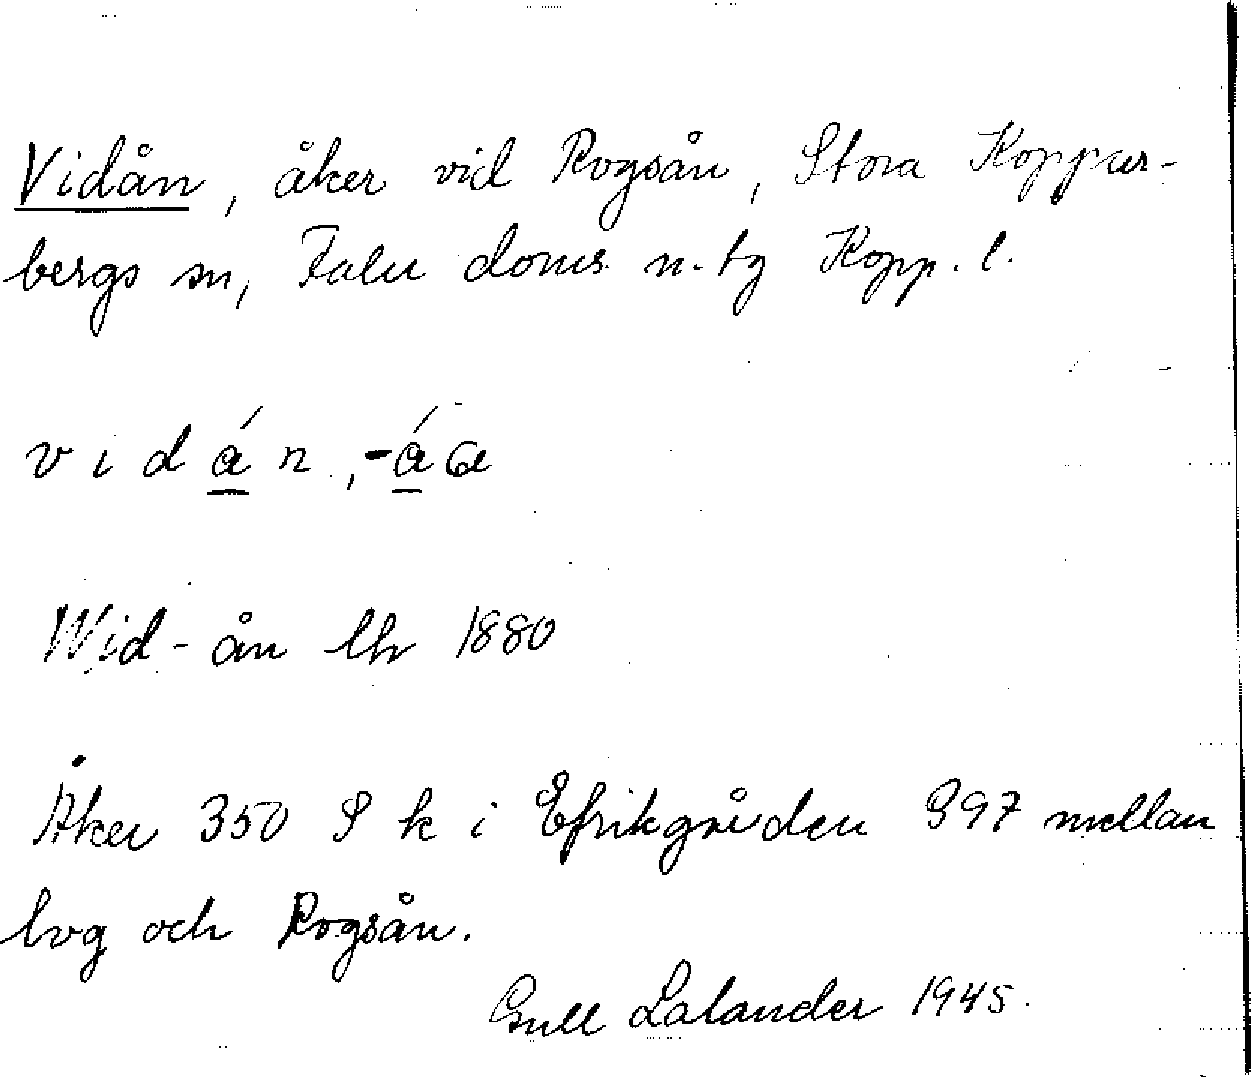 Vidån, åker vid Rogsån, Stora Koppar-
bergs sn, Falu doms n. tg Kopp. l.
v i d á n, -á a
Wid-ån lh 1880
Åker 350 S k i Efrikgården 997 mellan
lvg och Rogsån.
Gull Lalander 1945.